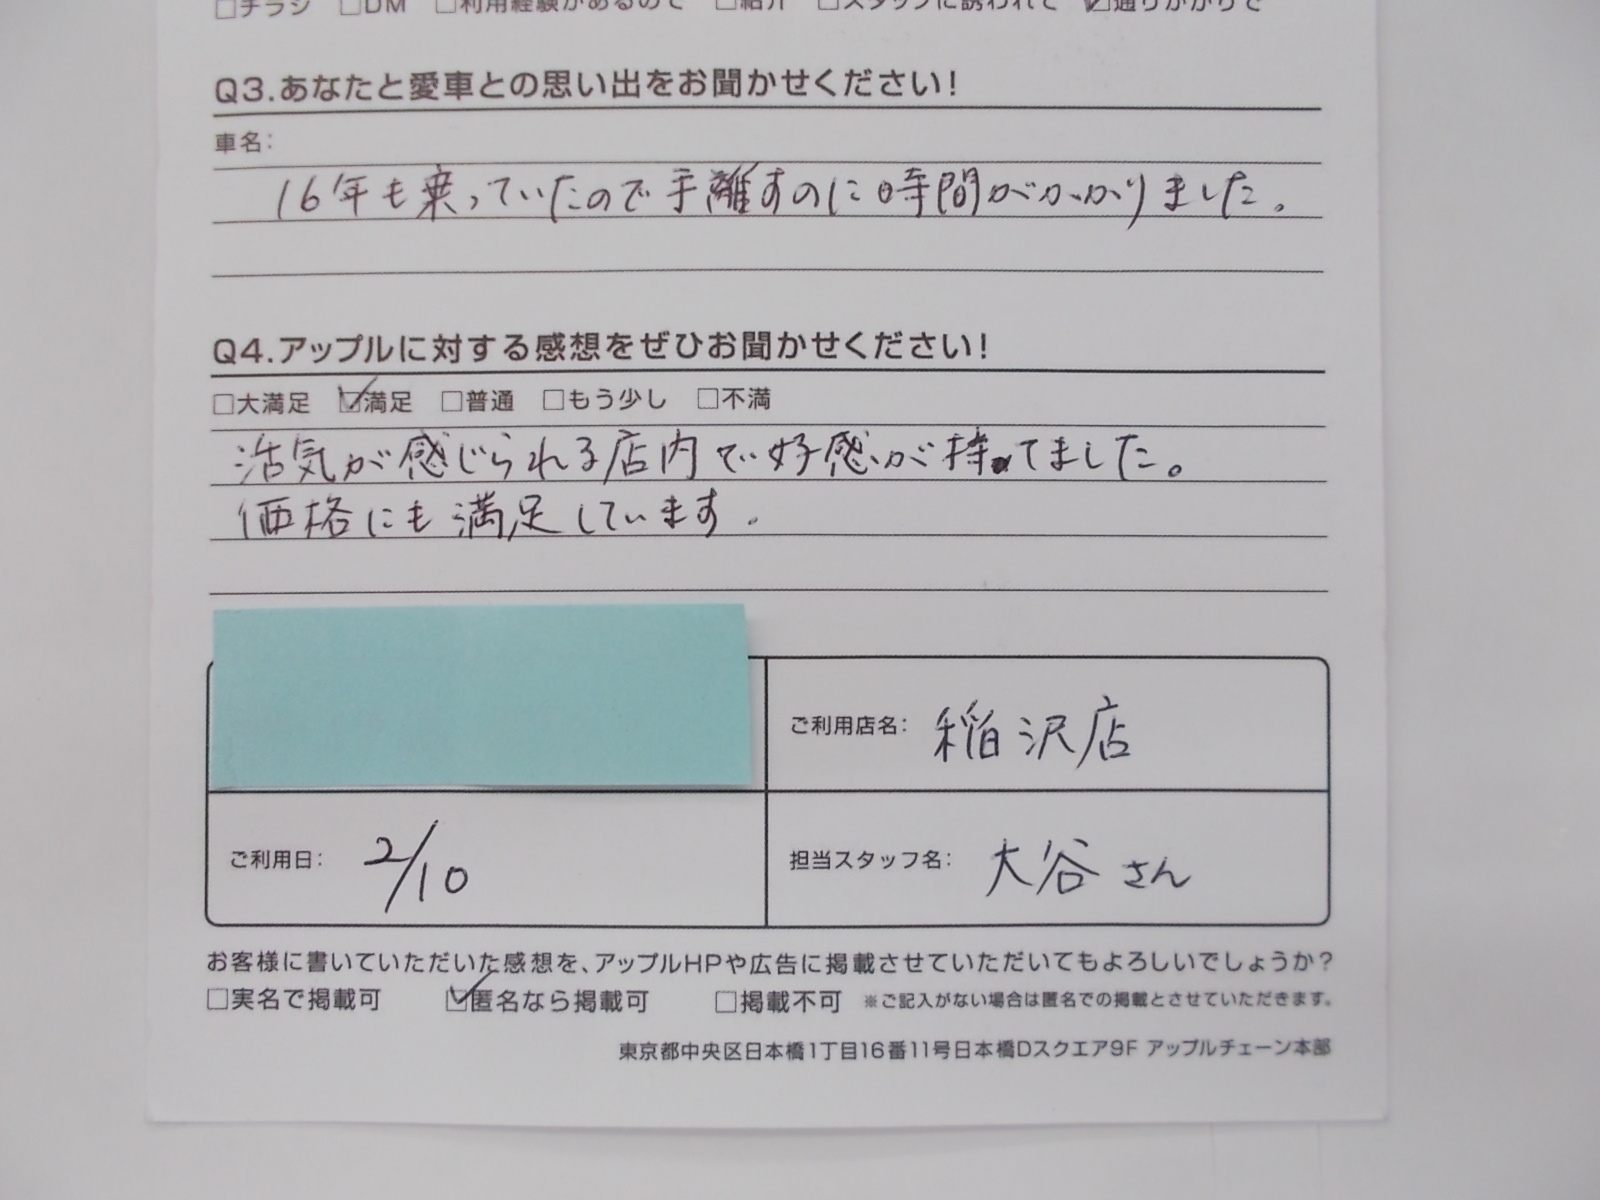 □チラシ □DM □利用経験があるので □紹介 □スタッフに誘われて ☑通りがかりで
Q3.あなたと愛車との思い出をお聞かせください!
車名:
16年も乗っていたので手離すのに時間がかかりました。
Q4.アップルに対する感想をぜひお聞かせください!
□大満足 ☑満足 □普通 □もう少し □不満
活気が感じられる店内で好感が持てました。
価格にも満足しています。
ご利用店名: 稲沢店
ご利用日: 2/10 担当スタッフ名: 大谷さん
お客様に書いていただいた感想を、アップルHPや広告に掲載させていただいてもよろしいでしょうか?
□実名で掲載可 ☑匿名なら掲載可 □掲載不可 ※ご記入がない場合は匿名での掲載とさせていただきます。
東京都中央区日本橋1丁目16番11号日本橋Dスクエア9F アップルチェーン本部